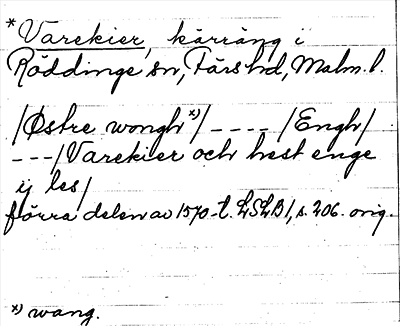 *Varekier, kärräng i
Röddinge sn, Färs hd, Malm. l.
/Østre wongh *)/ ---- /Engh/
---/Varekier och hest enge
ij les/
förra delen av 1570-t. LSLB 1, s. 206. orig.
*) wang.